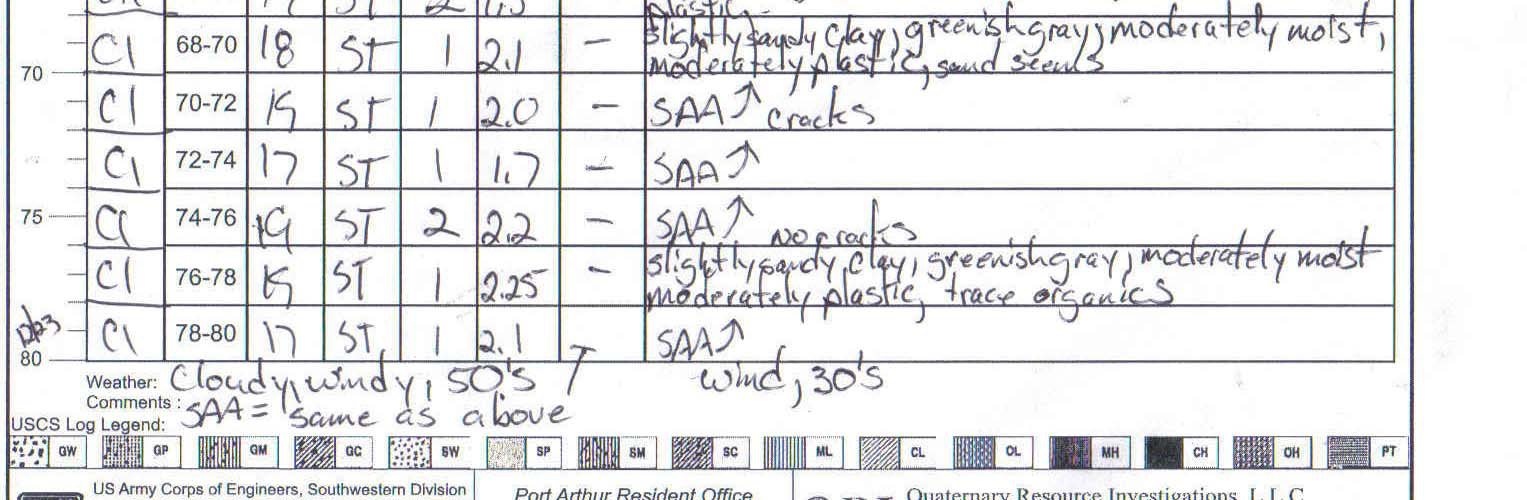 plastic
Cl 68-70 18 ST 1 2.1 - slightly sandy clay, greenish gray, moderately moist,
70 moderately plastic, sand seems
Cl 70-72 19 ST 1 2.0 - SAA↑ cracks
Cl 72-74 17 ST 1 1.7 - SAA↑
75 Cl 74-76 19 ST 2 2.2 - SAA↑ no cracks
Cl 76-78 19 ST 1 2.25 - slightly sandy clay, greenish gray, moderately moist
moderately plastic, trace organics
Cl 78-80 17 ST 1 2.1 SAA↑
80
Weather: Cloudy, windy, 50's / wind, 30's
Comments: SAA = same as above
USCS Log Legend:
GW GP GM GC SW SP SM SC ML CL OL MH CH OH PT
US Army Corps of Engineers, Southwestern Division Port Arthur Resident Office Quaternary Resource Investigations, L.L.C